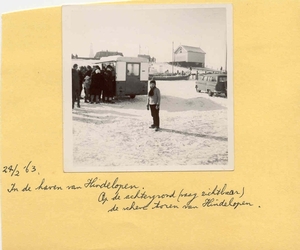 24/2 '63.
In de haven van Hindelopen.
Op de achtergrond (vaag zichtbaar)
de scheve toren van Hindelopen.